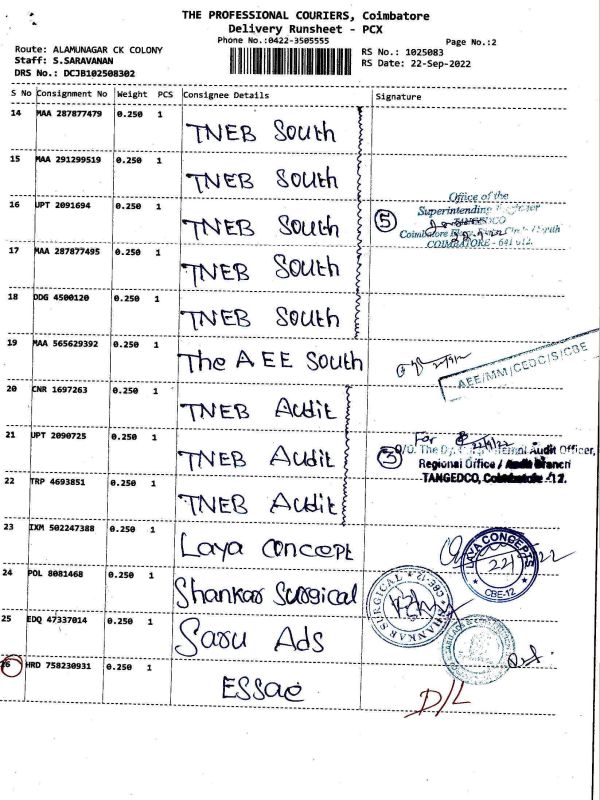 THE PROFESSIONAL COURIERS, Coimbatore
Delivery Runsheet - PCX
Phone No.:0422-3505555
Page No.:2
Route: ALAMUNAGAR CK COLONY
RS No.: 1025083
Staff: S.SARAVANAN
RS Date: 22-Sep-2022
DRS No.: DCJB102508302
S No Consignment No Weight PCS Consignee Details Signature
14 MAA 287877479 0.250 1
TNEB South
15 MAA 291299519 0.250 1
TNEB South
16 UPT 2091694 0.250 1
TNEB South
5
Office of the
Superintending
TANGEDCO
Coimbatore
COIMBATORE - 641 012.
17 MAA 287877495 0.250 1
TNEB South
18 DDG 4500120 0.250 1
TNEB South
19 MAA 565629392 0.250 1
The AEE South
AEE/MM/CEDC/S/CBE
20 CNR 1697263 0.250 1
TNEB Audit
21 UPT 2090725 0.250 1
TNEB Audit
3
For 22/9/22
O/O. The Dy. Internal Audit Officer,
Regional Office / Audit Branch
TANGEDCO, Coimbatore -12.
22 TRP 4693851 0.250 1
TNEB Audit
23 IXM 502247388 0.250 1
Laya concept
LAYA CONCEPTS
CBE-12
24 POL 8081468 0.250 1
Shankar Surgical
SHANKAR SURGICAL
CBE-12
25 EDQ 47337014 0.250 1
Saru Ads
26 HRD 758230931 0.250 1
ESSae
D/L